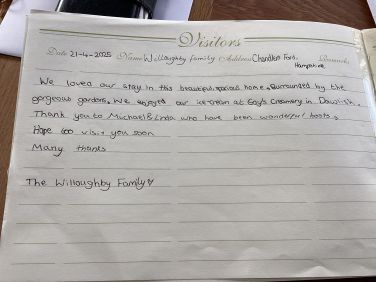 Visitors
Date 21-4-2025 Name Willoughby family Address Chandlers Ford, Remarks
Hampshire
We loved our stay in this beautiful, spacious home. Surrounded by the
gorgeous gardens. We enjoyed our ice-cream at Gay's Creamery in Dawlish.
Thank you to Michael & Linda who have been wonderful hosts.
Hope too visit you soon
Many thanks
The Willoughby Family♡